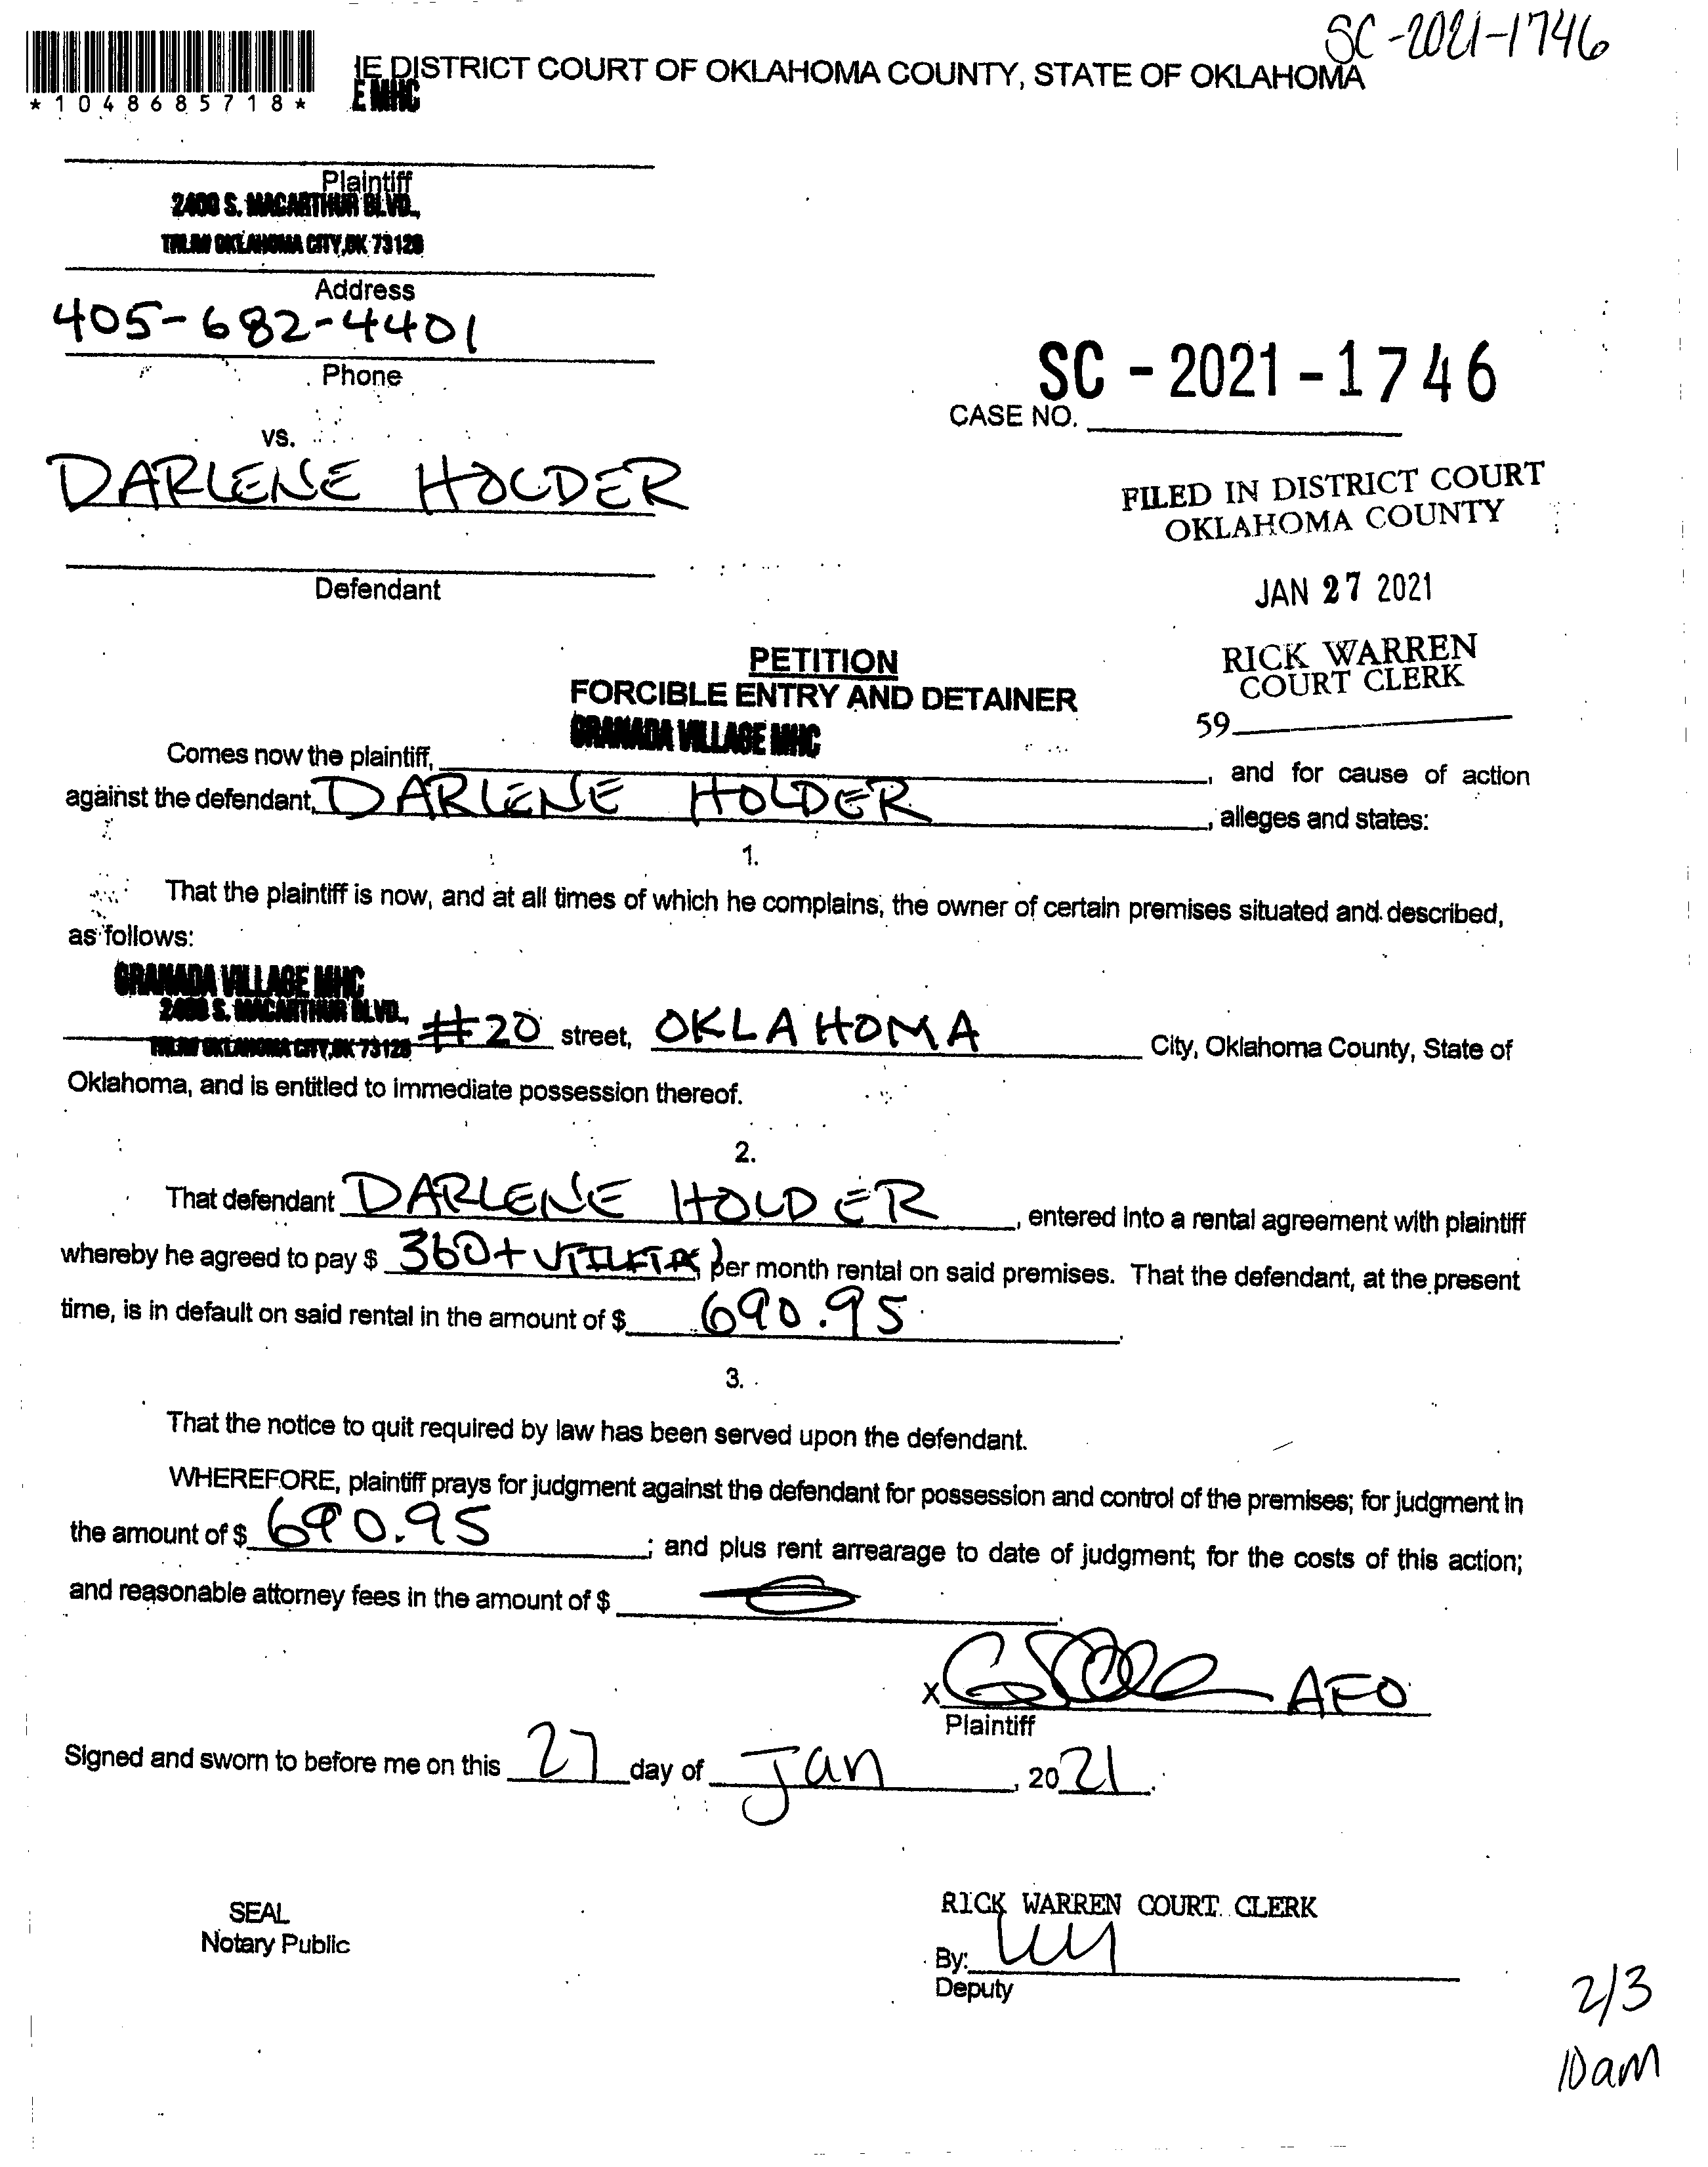 SC-2021-1746
IE DISTRICT COURT OF OKLAHOMA COUNTY, STATE OF OKLAHOMA
E MHC
*1048685718*
Plaintiff
2400 S. MACARTHUR BLVD.,
OKLAHOMA CITY, OK 73128
Address
405-682-4401
Phone
SC - 2021 - 1746
CASE NO.
vs.
DARLENE HOLDER
FILED IN DISTRICT COURT
OKLAHOMA COUNTY
Defendant
JAN 27 2021
RICK WARREN
COURT CLERK
59
PETITION
FORCIBLE ENTRY AND DETAINER
GRANADA VILLAGE MHC
Comes now the plaintiff, , and for cause of action
against the defendant, DARLENE HOLDER , alleges and states:
1.
That the plaintiff is now, and at all times of which he complains, the owner of certain premises situated and described,
as follows:
GRANADA VILLAGE MHC
2400 S. MACARTHUR BLVD.,
OKLAHOMA CITY, OK 73128 #20 street, OKLAHOMA City, Oklahoma County, State of
Oklahoma, and is entitled to immediate possession thereof.
2.
That defendant DARLENE HOLDER , entered into a rental agreement with plaintiff
whereby he agreed to pay $ 360+ per month rental on said premises. That the defendant, at the present
time, is in default on said rental in the amount of $ 690.95 .
3.
That the notice to quit required by law has been served upon the defendant.
WHEREFORE, plaintiff prays for judgment against the defendant for possession and control of the premises; for judgment in
the amount of $ 690.95 ; and plus rent arrearage to date of judgment; for the costs of this action;
and reasonable attorney fees in the amount of $ .
X AFO
Plaintiff
Signed and sworn to before me on this 27 day of Jan , 2021.
SEAL
Notary Public
RICK WARREN COURT CLERK
By:
Deputy
2/3
10am